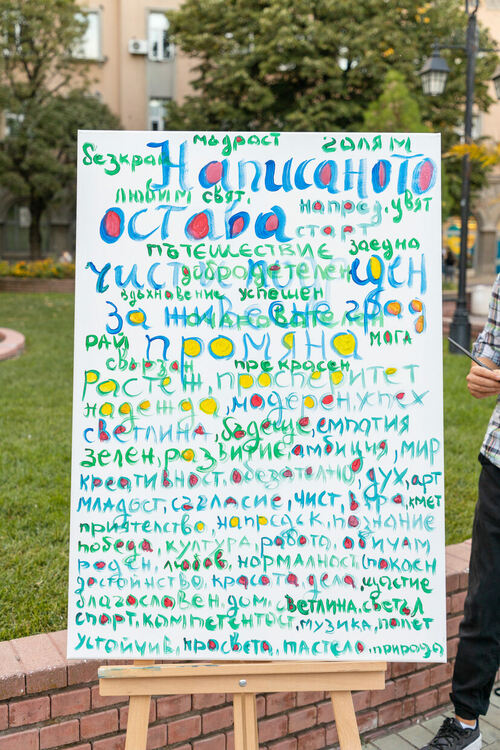 мъдраст голям
безкрай Написаното
любим свят. напред. увят
остава старт
пътешествие заедно
чист добродетелен ден
вдъхновение успешен
за живеене град
очарователен
рай промяна мога
свързан прекрасен
растеж, просперитет
надежда, модерен, успех
светлина, бъдеще, емпатия
зелен, развитие, амбиция, мир
креативност, обезателно, дух, арт
младост, съгласие, чист, вяра, кмет
приятелство, напредък, познание
победа, култура, работа, обичам
роден, любов, нормалност, спокоен
достойнство, красота, дела, щастие
благословен, дом, светлина, светъл
спорт, компетентост, музика, полет
устойчив, просвета, пастело, природа